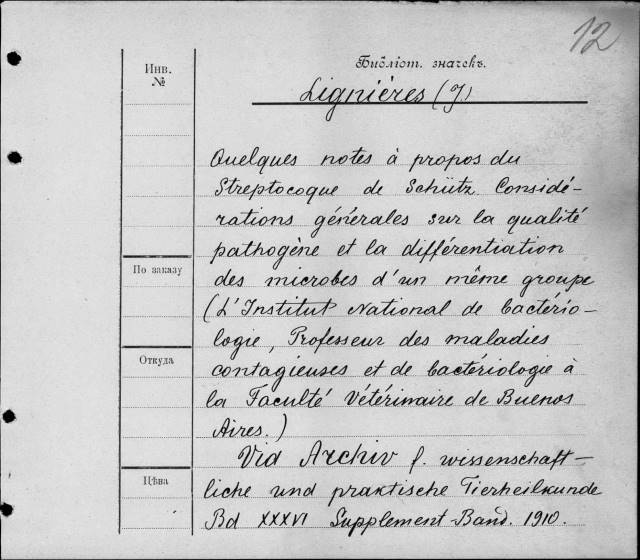 12
Библіот. значекъ.
Инв.
№
Lignières (J)
Quelques notes à propos du
Streptocoque de Schütz. Considé-
rations générales sur la qualité
pathogène et la différentiation
По заказу
des microbes d'un même groupe
(L'Institut National de bactério-
logie, Professeur des maladies
Откуда
contagieuses et de bactériologie à
la Faculté Vétérinaire de Buenos
Aires.)
Vid Archiv f. wissenschaft-
Цѣна
liche und praktische Tierheilkunde
Bd XXXVI Supplement-Band. 1910.